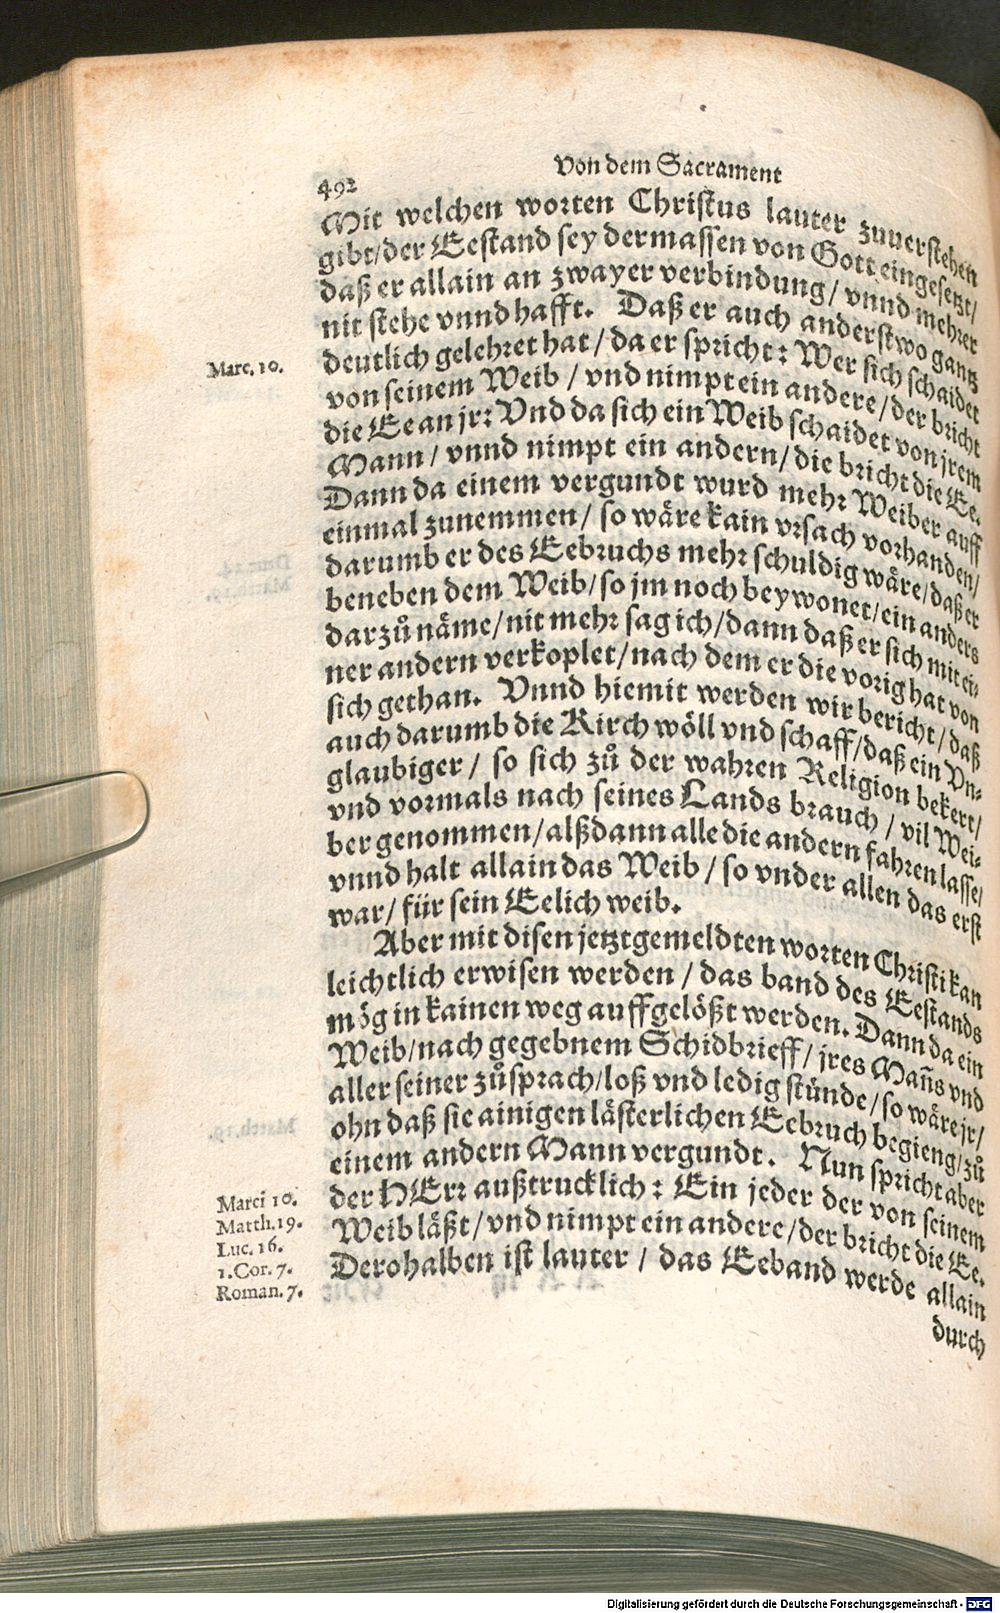 492
Von dem Sacrament
Mit welchen worten Christus lauter zuuerstehen
gibt/der Eestand sey dermassen von Gott eingesetzt/
daß er allain an zwayer verbindung/ vnnd mehrer
nit stehe vnnd hafft. Daß er auch anderstwo gantz
Marc. 10.
deutlich gelehret hat/ da er spricht: Wer sich schaidet
von seinem Weib / vnd nimpt ein andere/ der bricht
die Ee an jr: Vnd da sich ein Weib schaidet von jrem
Mann/ vnnd nimpt ein andern/ die bricht die Ee.
Dann da einem vergundt wurd mehr Weiber auff
einmal zunemmen/ so wäre kain vrsach vorhanden/
darumb er des Eebruchs mehr schuldig wäre/daß er
beneben dem Weib/so jm noch beywonet/ein anders
darzů näme/nit mehr sag ich/dann daß er sich mit ei-
ner andern verkoplet/nach dem er die vorig hat von
sich gethan. Vnnd hiemit werden wir bericht/ daß
auch darumb die Kirch wöll vnd schaff/daß ein Vn-
glaubiger/ so sich zů der wahren Religion bekert/
vnd vormals nach seines Lands brauch / vil Wei-
ber genommen/alßdann alle die andern fahren lasse/
vnnd halt allain das Weib/ so vnder allen das erst
war/ für sein Eelich weib.
Aber mit disen jetztgemeldten worten Christi kan
leichtlich erwisen werden / das band des Eestands
mög in kainen weg auffgelößt werden. Dann da ein
Weib/nach gegebnem Schidbrieff/ jres Mañs vnd
aller seiner zůsprach/loß vnd ledig stünde/so wäre jr/
ohn daß sie ainigen lästerlichen Eebruch begieng/zů
einem andern Mann vergundt. Nun spricht aber
Marci 10.
Matth. 19.
Luc. 16.
1. Cor. 7.
Roman. 7.
der HErr außtrucklich: Ein jeder der von seinem
Weib läßt/ vnd nimpt ein andere/der bricht die Ee.
Derohalben ist lauter / das Eeband werde allain
durch
Digitalisierung gefördert durch die Deutsche Forschungsgemeinschaft - DFG